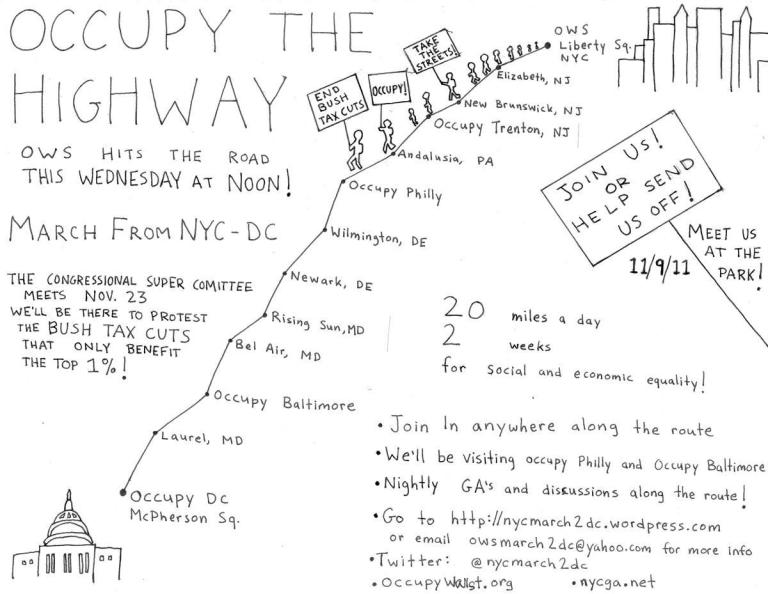 OCCUPY THE
HIGHWAY
OWS HITS THE ROAD
THIS WEDNESDAY AT NOON!
MARCH FROM NYC-DC
THE CONGRESSIONAL SUPER COMITTEE
MEETS NOV. 23
WE'LL BE THERE TO PROTEST
THE BUSH TAX CUTS
THAT ONLY BENEFIT
THE TOP 1%!
END
BUSH
TAX CUTS
OCCUPY!
TAKE
THE
STREETS!
OWS
Liberty Sq.
NYC
Elizabeth, NJ
New Brunswick, NJ
Occupy Trenton, NJ
Andalusia, PA
Occupy Philly
Wilmington, DE
Newark, DE
Rising Sun, MD
Bel Air, MD
Occupy Baltimore
Laurel, MD
Occupy Dc
McPherson Sq.
JOIN US!
OR
HELP SEND
US OFF!
MEET US
AT THE
PARK!
11/9/11
20 miles a day
2 weeks
for social and economic equality!
• Join In anywhere along the route
• We'll be visiting occupy Philly and Occupy Baltimore
• Nightly GA's and discussions along the route!
• Go to http://nycmarch2dc.wordpress.com
or email owsmarch2dc@yahoo.com for more info
• Twitter: @nycmarch2dc
• OccupyWallst.org • nycga.net